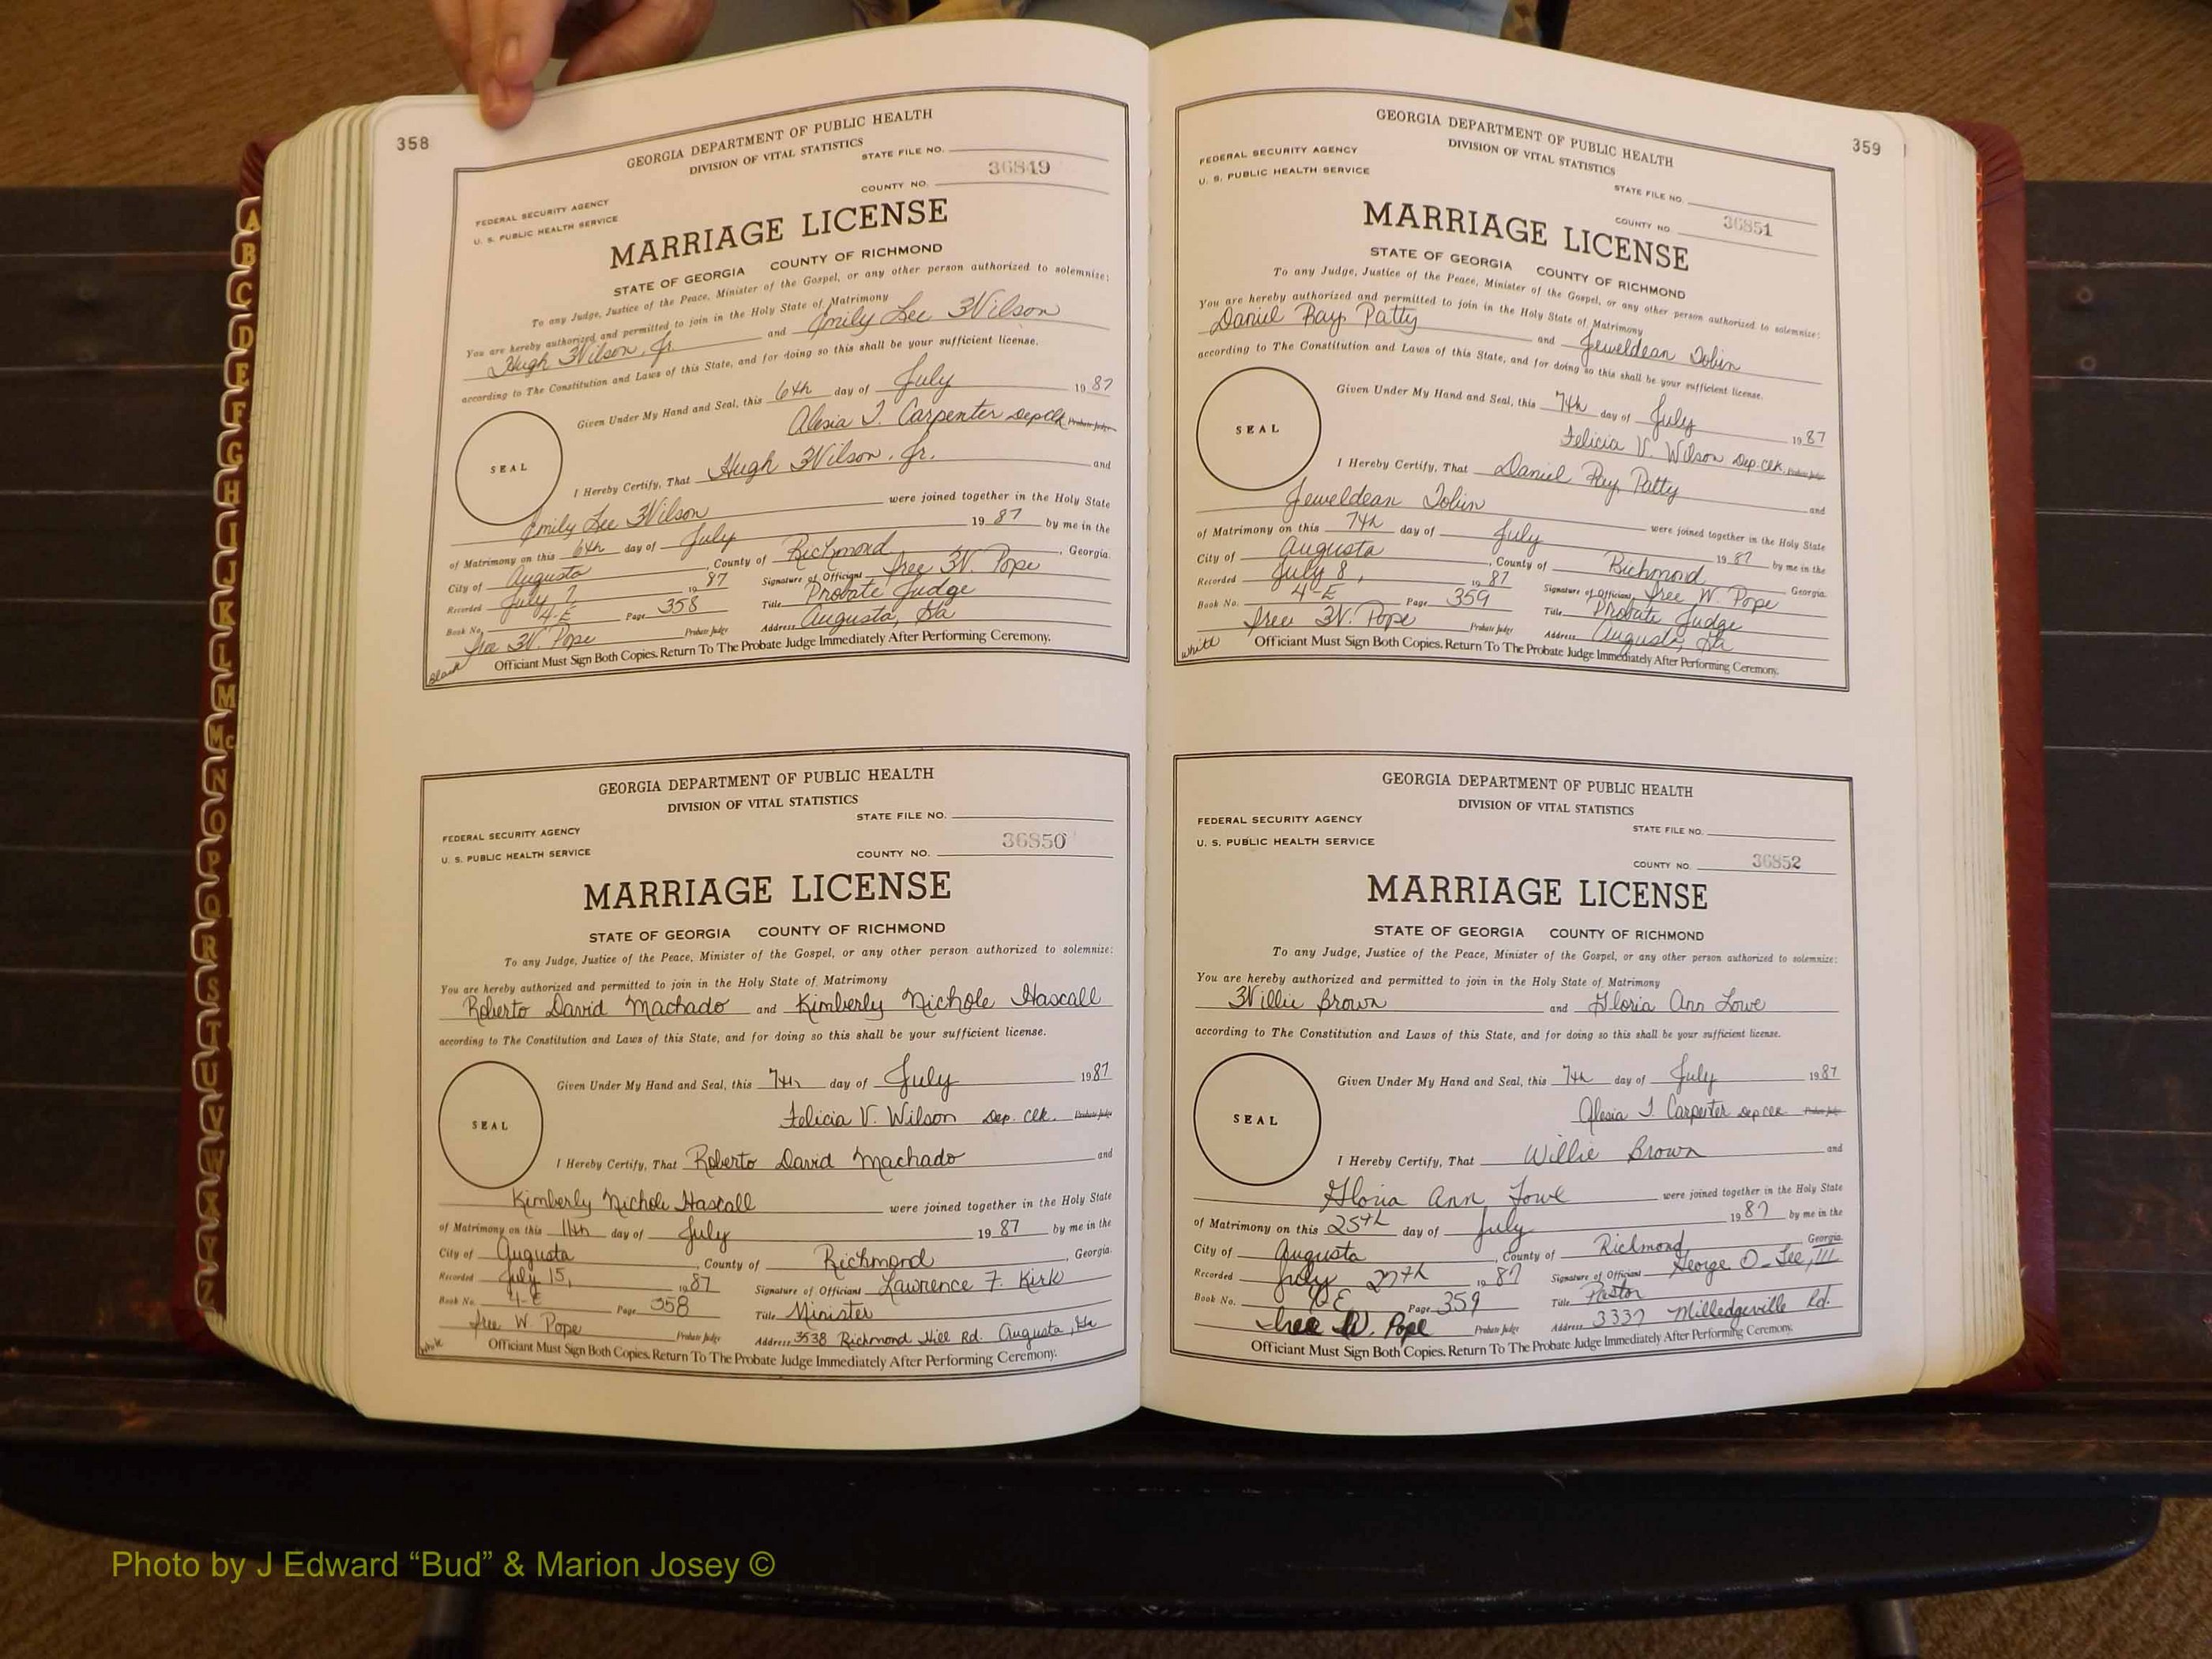 358
GEORGIA DEPARTMENT OF PUBLIC HEALTH
DIVISION OF VITAL STATISTICS
STATE FILE NO.
36849
COUNTY NO.
FEDERAL SECURITY AGENCY
U. S. PUBLIC HEALTH SERVICE
MARRIAGE LICENSE
STATE OF GEORGIA COUNTY OF RICHMOND
To any Judge, Justice of the Peace, Minister of the Gospel, or any other person authorized to solemnize:
You are hereby authorized and permitted to join in the Holy State of Matrimony
Hugh Wilson, Jr. and Emily Lee Wilson
according to The Constitution and Laws of this State, and for doing so this shall be your sufficient license.
Given Under My Hand and Seal, this 6th day of July 1987
Alesia J. Carpenter Dep Clk Probate Judge
SEAL
I Hereby Certify, That Hugh Wilson, Jr. and
Emily Lee Wilson were joined together in the Holy State
of Matrimony on this 6th day of July 1987 by me in the
City of Augusta, County of Richmond, Georgia.
Recorded July 7 1987 Signature of Officiant Iree W. Pope
Book No. 4-E Page 358 Title Probate Judge
Iree W. Pope Probate Judge Address Augusta, Ga
Officiant Must Sign Both Copies. Return To The Probate Judge Immediately After Performing Ceremony.
Black
GEORGIA DEPARTMENT OF PUBLIC HEALTH
DIVISION OF VITAL STATISTICS
STATE FILE NO.
FEDERAL SECURITY AGENCY
36850
U. S. PUBLIC HEALTH SERVICE
COUNTY NO.
MARRIAGE LICENSE
STATE OF GEORGIA COUNTY OF RICHMOND
To any Judge, Justice of the Peace, Minister of the Gospel, or any other person authorized to solemnize:
You are hereby authorized and permitted to join in the Holy State of Matrimony
Roberto David Machado and Kimberly Nichole Hascall
according to The Constitution and Laws of this State, and for doing so this shall be your sufficient license.
Given Under My Hand and Seal, this 7th day of July 1987
Felicia V. Wilson Dep. Clk. Probate Judge
SEAL
I Hereby Certify, That Roberto David Machado and
Kimberly Nichole Hascall were joined together in the Holy State
of Matrimony on this 11th day of July 1987 by me in the
City of Augusta, County of Richmond, Georgia.
Recorded July 15, 1987 Signature of Officiant Lawrence F. Kirk
Book No. 4-E Page 358 Title Minister
Iree W. Pope Probate Judge Address 3538 Richmond Hill Rd. Augusta, Ga
Officiant Must Sign Both Copies. Return To The Probate Judge Immediately After Performing Ceremony.
359
GEORGIA DEPARTMENT OF PUBLIC HEALTH
DIVISION OF VITAL STATISTICS
FEDERAL SECURITY AGENCY
U. S. PUBLIC HEALTH SERVICE
STATE FILE NO.
COUNTY NO. 36851
MARRIAGE LICENSE
STATE OF GEORGIA COUNTY OF RICHMOND
To any Judge, Justice of the Peace, Minister of the Gospel, or any other person authorized to solemnize:
You are hereby authorized and permitted to join in the Holy State of Matrimony
Daniel Ray Patty and Jeweldean Tobin
according to The Constitution and Laws of this State, and for doing so this shall be your sufficient license.
Given Under My Hand and Seal, this 7th day of July 1987
Felicia V. Wilson Dep. Clk. Probate Judge
SEAL
I Hereby Certify, That Daniel Ray Patty and
Jeweldean Tobin were joined together in the Holy State
of Matrimony on this 7th day of July 1987 by me in the
City of Augusta, County of Richmond Georgia.
Recorded July 8, 1987 Signature of Officiant Iree W. Pope
Book No. 4-E Page 359 Title Probate Judge
Iree W. Pope Probate Judge Address Augusta, Ga
Officiant Must Sign Both Copies. Return To The Probate Judge Immediately After Performing Ceremony.
White
GEORGIA DEPARTMENT OF PUBLIC HEALTH
DIVISION OF VITAL STATISTICS
FEDERAL SECURITY AGENCY
STATE FILE NO.
U. S. PUBLIC HEALTH SERVICE
COUNTY NO. 36852
MARRIAGE LICENSE
STATE OF GEORGIA COUNTY OF RICHMOND
To any Judge, Justice of the Peace, Minister of the Gospel, or any other person authorized to solemnize:
You are hereby authorized and permitted to join in the Holy State of Matrimony
Willie Brown and Gloria Ann Lowe
according to The Constitution and Laws of this State, and for doing so this shall be your sufficient license.
Given Under My Hand and Seal, this 7th day of July 1987
Alesia J. Carpenter Dep Clk Probate Judge
SEAL
I Hereby Certify, That Willie Brown and
Gloria Ann Lowe were joined together in the Holy State
of Matrimony on this 25th day of July 1987 by me in the
City of Augusta, County of Richmond, Georgia.
Recorded July 27th 1987 Signature of Officiant George O. Lee, III
Book No. 4E Page 359 Title Pastor
Iree W. Pope Probate Judge Address 3337 Milledgeville Rd.
Officiant Must Sign Both Copies. Return To The Probate Judge Immediately After Performing Ceremony.
A
B
C
D
E
F
G
H
I
J
K
L
M
Mc
N
O
P
Q
R
S
T
U
V
W
X
Y
Z
Photo by J Edward “Bud” & Marion Josey ©